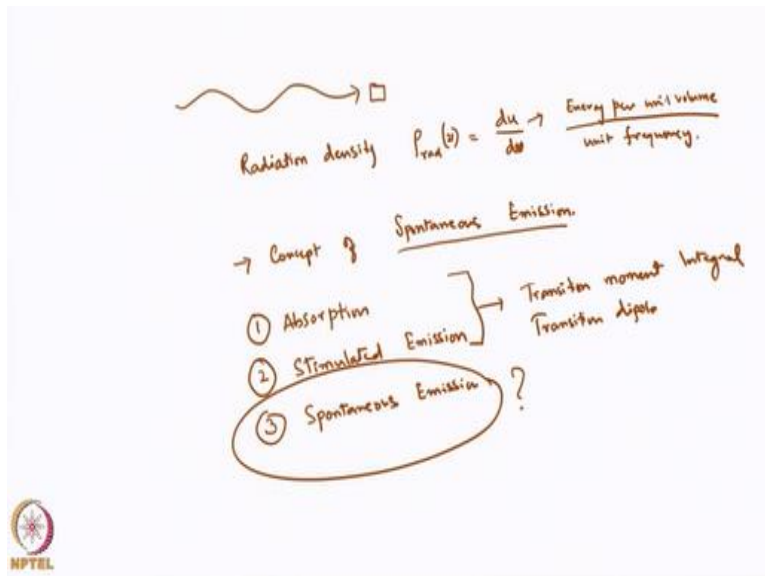 Radiation density ρrad(ν) = du/dν → Energy per unit volume / unit frequency.
→ Concept of Spontaneous Emission.
① Absorption
② Stimulated Emission
→ Transition moment Integral
Transition dipole
③ Spontaneous Emission ?
NPTEL